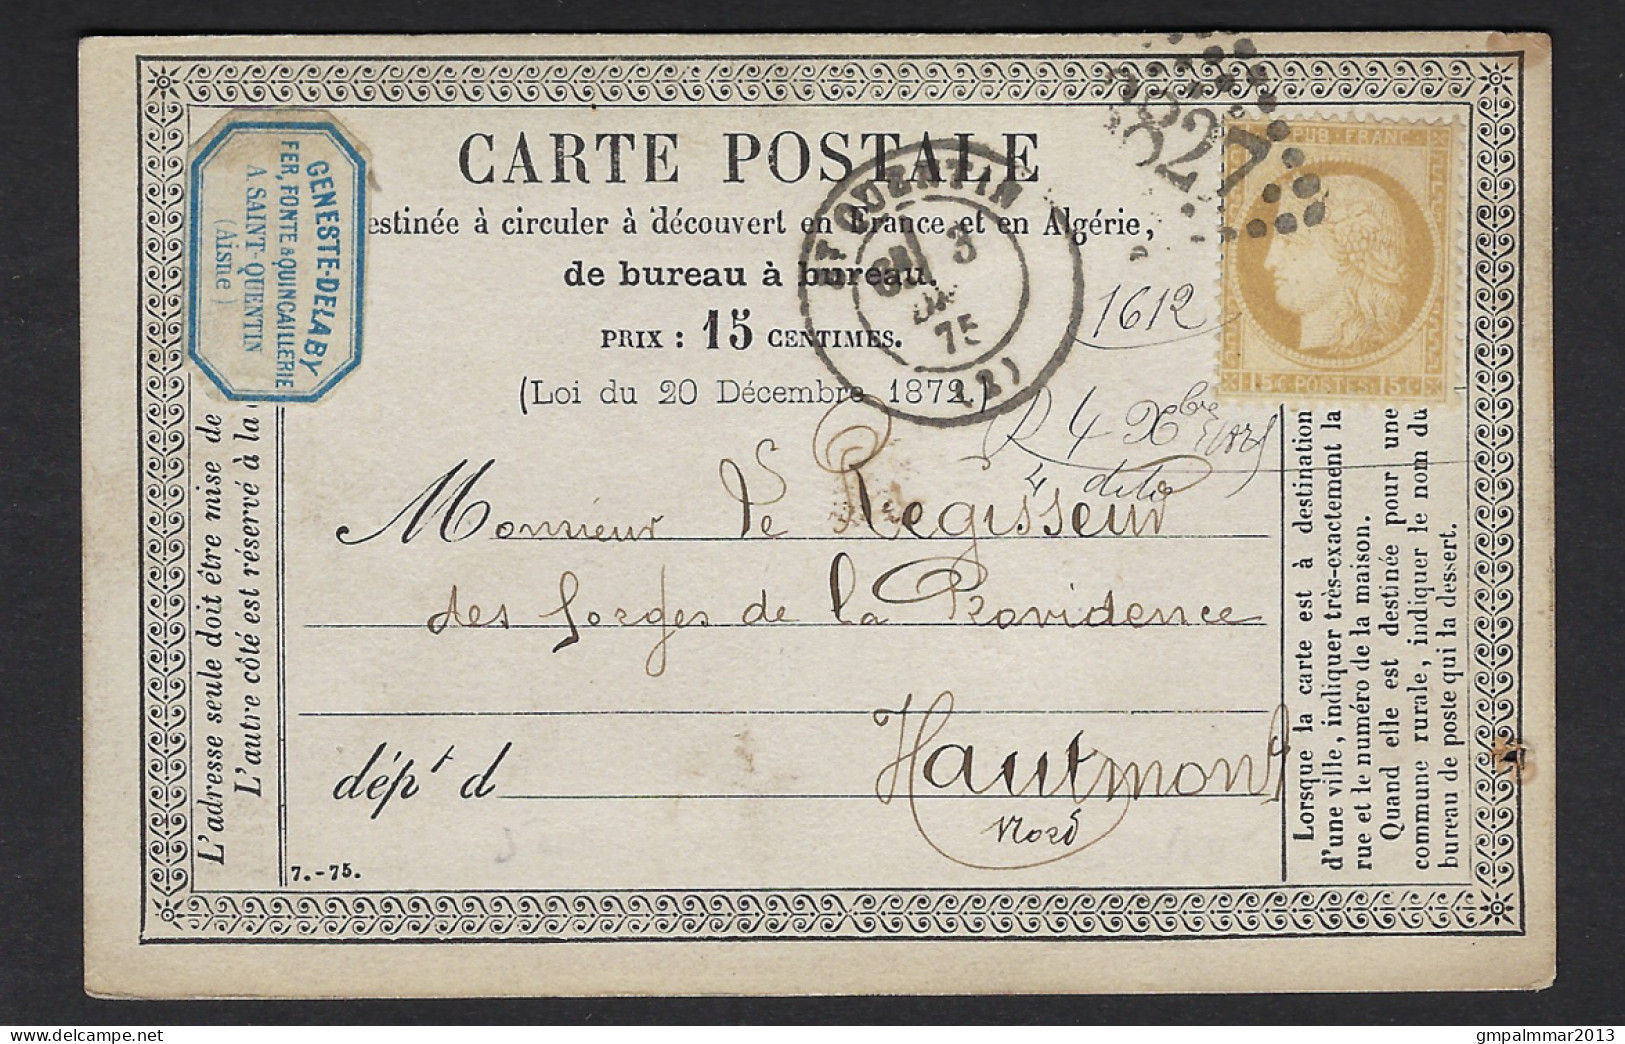 CARTE POSTALE
estinée à circuler à découvert en France et en Algérie,
de bureau à bureau.
PRIX : 15 CENTIMES.
(Loi du 20 Décembre 1872.)
GENESTE-DELABY
FER, FONTE & QUINCAILLERIE
A SAINT-QUENTIN
(Aisne)
ST QUENTIN
3
75
(2)
3827
PUB · FRANC
15 C POSTES 15 C
1612
R 4 Xbre
4 dito
Monsieur Le Regisseur
des forges de la Providence
dépt d
Hautmont
Nord
7.-75.
L'adresse seule doit être mise de
L'autre côté est réservé à la
Lorsque la carte est à destination
d'une ville, indiquer très-exactement la
rue et le numéro de la maison.
Quand elle est destinée pour une
commune rurale, indiquer le nom du
bureau de poste qui la dessert.
gmpalmmar2013